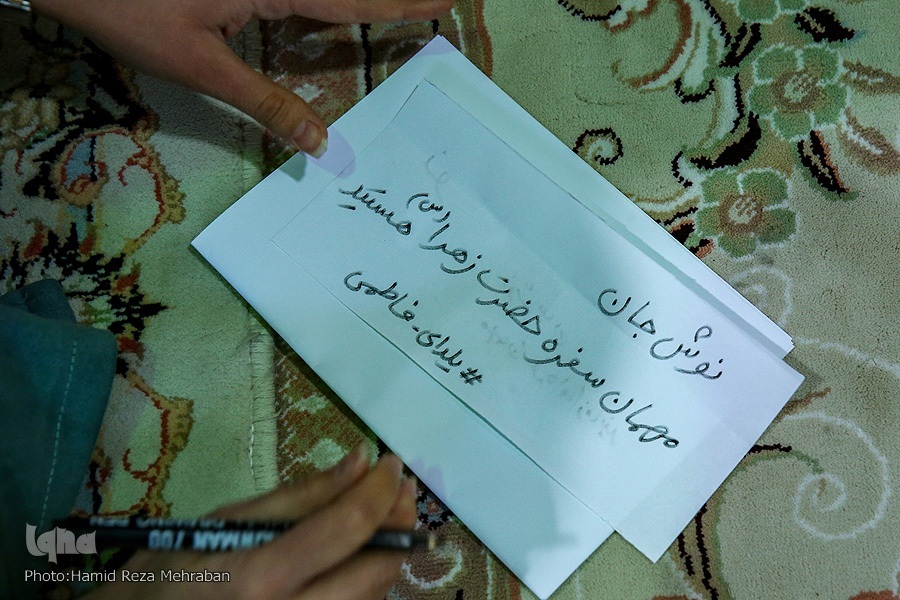 نوش جان
مهمان سفره حضرت زهرا (س) هستید
#یلدای_فاطمی
iqna
Photo:Hamid Reza Mehraban